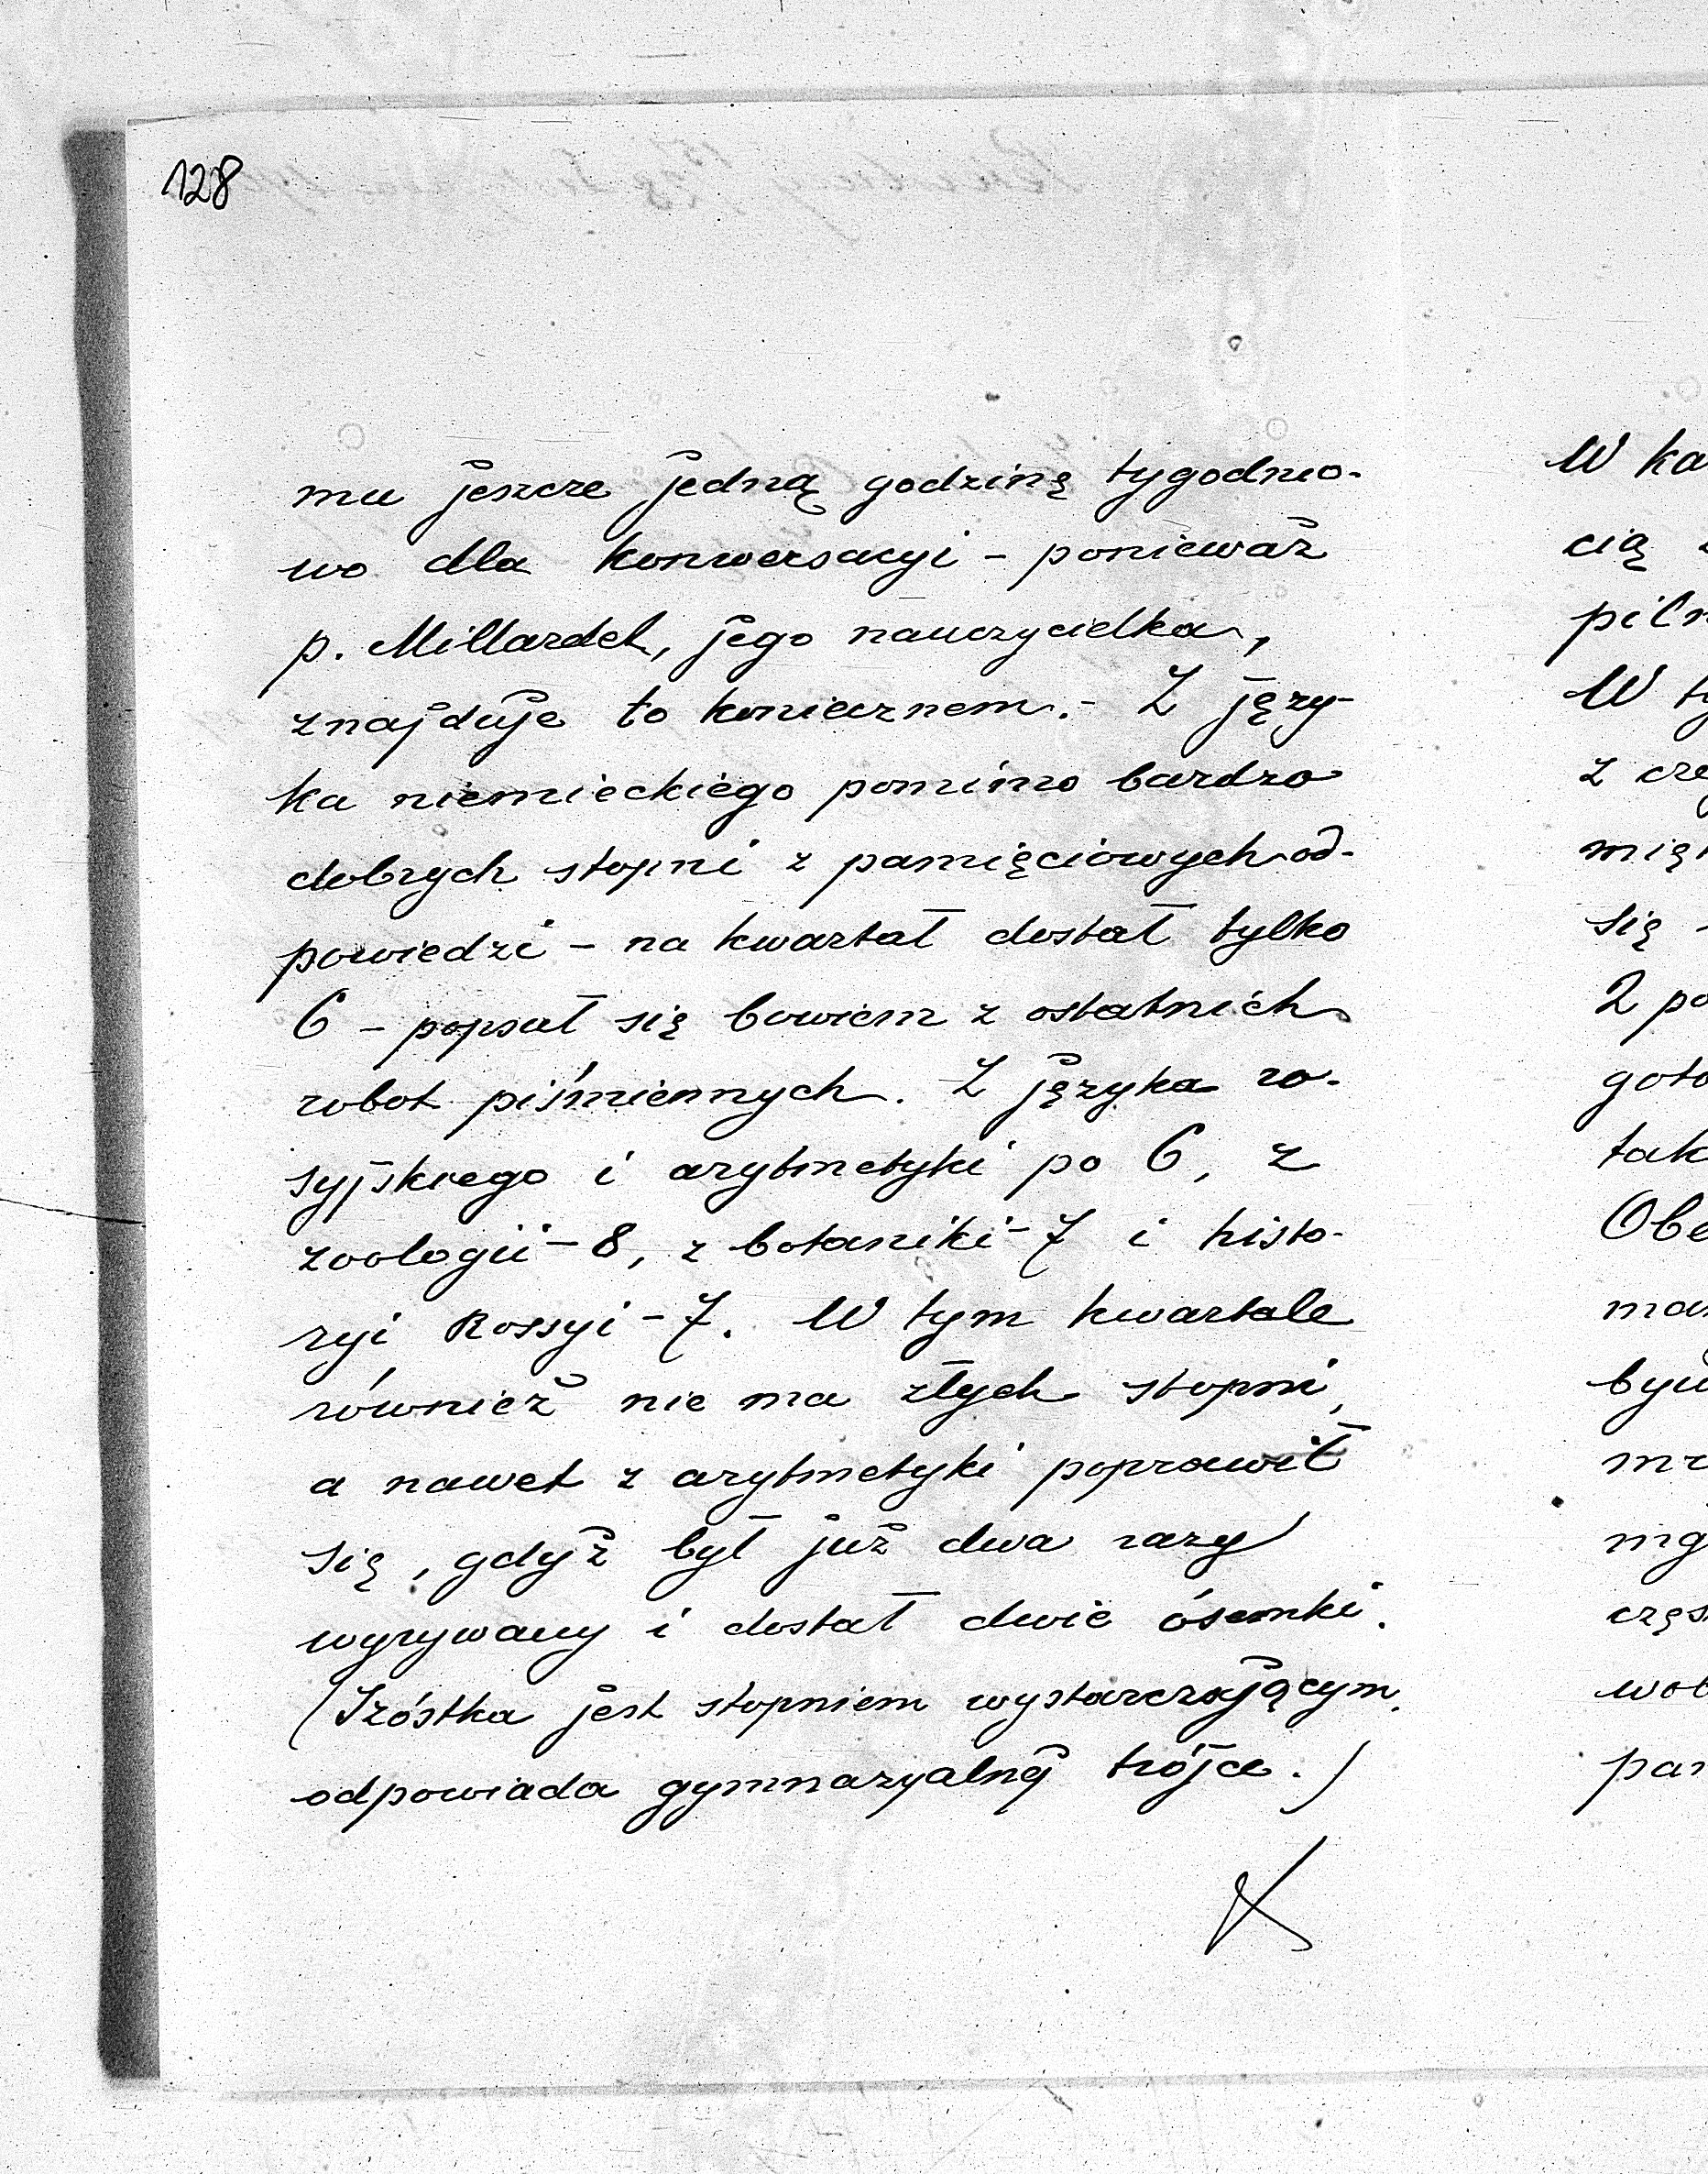 128
mu jeszcze jedną godzinę tygodnio-
wo dla konwersacyi - ponieważ
p. Millardet, jego nauczycielka,
znajduje to koniecznem. - Z języ-
ka niemieckiego pomimo bardzo
dobrych stopni z pamięciowych od-
powiedzi - na kwartał dostał tylko
6 - popsuł się bowiem z ostatnich
robot piśmiennych. Z języka ro-
syjskiego i arytmetyki po 6, z
zoologii - 8, z botaniki - 7 i histo-
ryi Rossyi - 7. W tym kwartale
również nie ma złych stopni,
a nawet z arytmetyki poprawił
się, gdyż był już dwa razy
wyrywany i dostał dwie ósemki.
(Szóstka jest stopniem wystarczającym.
odpowiada gymnazyalnej trójce.)
W ka
cią
piln
W ty
z czę
mięt
się
2 po
goto
tak
Obe
mar
byw
mr
mg
częs
wob
pan